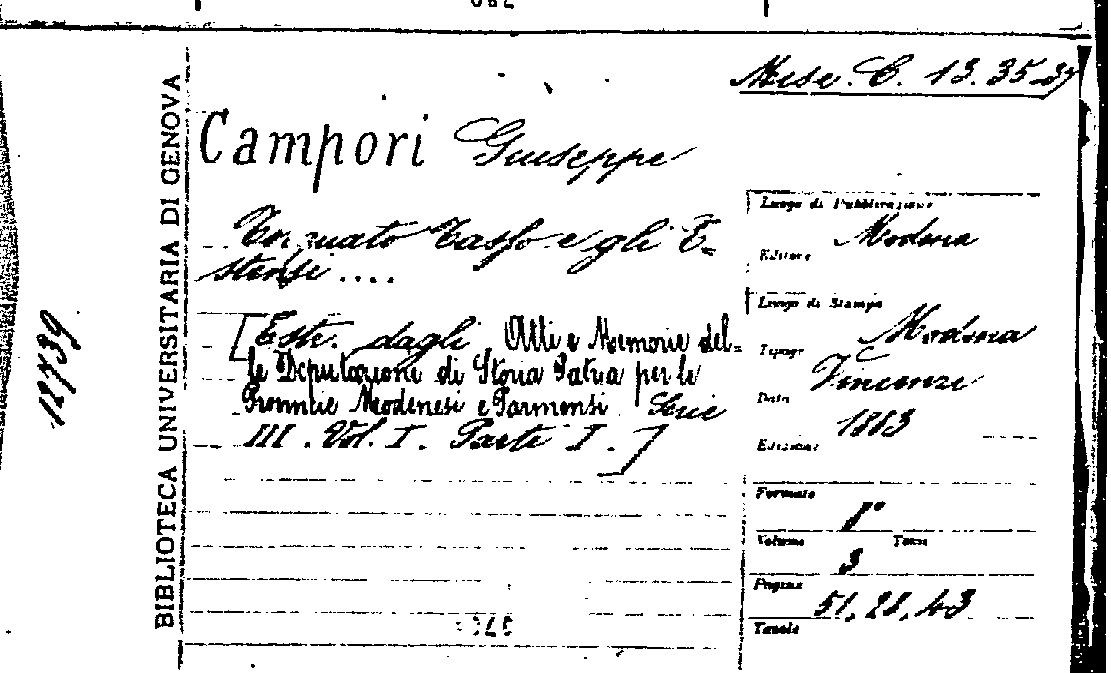 Misc. C. 13. 35-37
Campori Giuseppe
Torquato Tasso e gli E-
stensi ....
[Estr. dagli Atti e Memorie del-
le Deputazione di Storia Patria per le
Provincie Modenesi e Parmensi Serie
III. Vol. I. Parte I.]
Luogo di Pubblicazione
Modena
Editore
Luogo di Stampa
Modena
Tipogr.
Vincenzi
Data
1883
Edizione
Formato
Volume 3 Tomi
Pagine 51, 28, 43
Tavole
BIBLIOTECA UNIVERSITARIA DI GENOVA